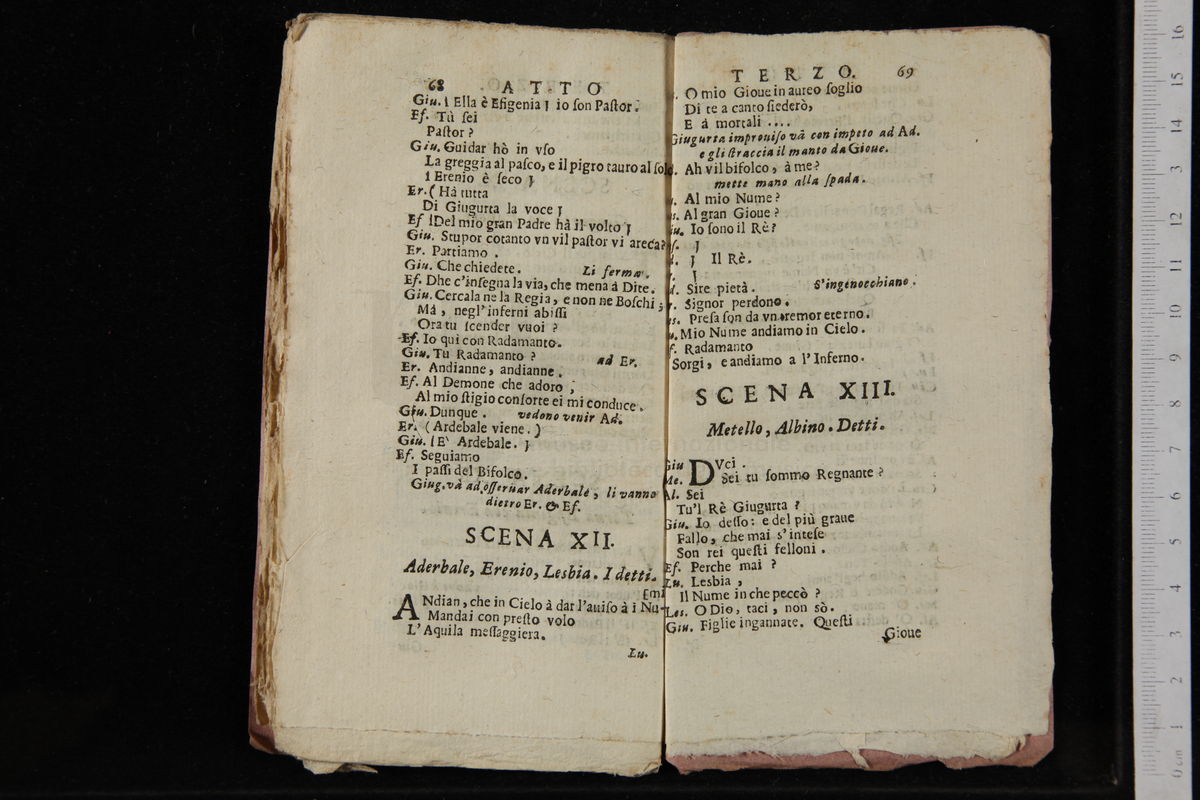 68 ATTO
Giu. [ Ella è Efigenia ] io son Pastor.
Ef. Tù sei
Pastor?
Giu. Guidar hò in vso
La greggia al pasco, e il pigro tauro al solc
[ Erenio è seco ]
Er. ( Hà tutta
Di Giugurta la voce ]
Ef [Del mio gran Padre hà il volto ]
Giu. Stupor cotanto vn vil pastor vi areca?
Er. Partiamo.
Giu. Che chiedete. Li ferma.
Ef. Dhe c'insegna la via, che mena á Dite.
Giu. Cercala ne la Regia, e non ne Boschi;
Mà, negl'inferni abissi
Ora tu scender vuoi?
Ef. Io qui con Radamanto.
Giu. Tu Radamanto? ad Er.
Er. Andianne, andianne.
Ef. Al Demone che adoro,
Al mio stigio consorte ei mi conduce.
Giu. Dunque. vedono venir Ad.
Er. (Ardebale viene.)
Giu. [E' Ardebale. ]
Ef. Seguiamo
I passi del Bifolco.
Giug. và ad osseruar Aderbale, li vanno
dietro Er. & Ef.
SCENA XII.
Aderbale, Erenio, Lesbia. I detti.
[mi
ANdian, che in Cielo à dar l'auiso à i Nu-
Mandai con presto volo
L'Aquila messaggiera.
Lu.
TERZO. 69
. O mio Gioue in aureo soglio
Di te a canto siederò,
E á mortali ....
Giugurta improuiso và con impeto ad Ad.
e gli straccia il manto da Gioue.
. Ah vil bifolco, à me?
mette mano alla spada.
. Al mio Nume?
s. Al gran Gioue?
iu. Io sono il Rè?
f. ]
. ] Il Rè.
. ]
d. Sire pietà. S'ingenocchiano.
r. Signor perdono.
s. Presa son da vn tremor eterno.
u. Mio Nume andiamo in Cielo.
f. Radamanto
Sorgi, e andiamo a l'Inferno.
SCENA XIII.
Metello, Albino. Detti.
Giu DVci.
Me. Sei tu sommo Regnante?
Al. Sei
Tu'l Rè Giugurta?
Giu. Io desso: e del più graue
Fallo, che mai s'intese
Son rei questi felloni.
Ef. Perche mai?
Lu. Lesbia,
Il Nume in che peccò?
Les. O Dio, taci, non sò.
Giu. Figlie ingannate. Questi
Gioue
16
15
14
13
12
11
10
9
8
7
6
5
4
3
2
1
0 cm